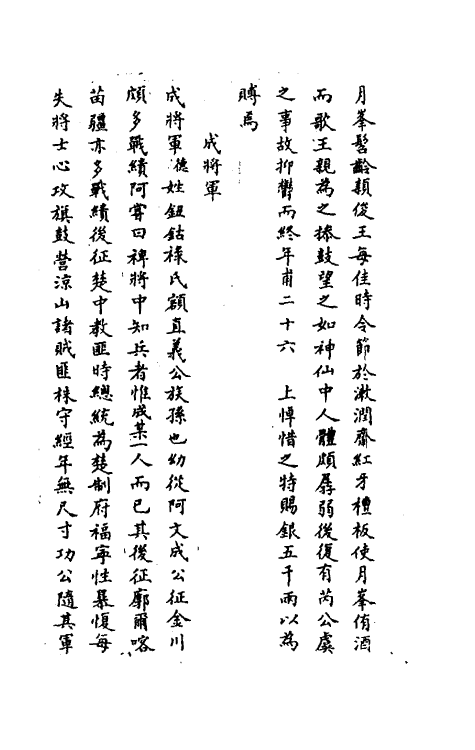 月峯髫齡頴俊王每佳時令節於漱潤齋紅牙檀板使月峯侑酒
而歌王親為之捧鼓望之如神仙中人體頗孱弱後復有芮公虞
之事故抑鬱而終年甫二十六　上悼惜之特賜銀五千兩以為
賻焉
成將軍
成將軍德姓鈕鈷祿氏額直義公族孫也幼從阿文成公征金川
頗多戰績阿嘗曰裨將中知兵者惟成某一人而已其後征廓爾喀
苗疆亦多戰績後征楚中教匪時總統為楚制府福寧性暴愎每
失將士心攻旗鼓營涼山諸賊匪株守經年無尺寸功公隨其軍